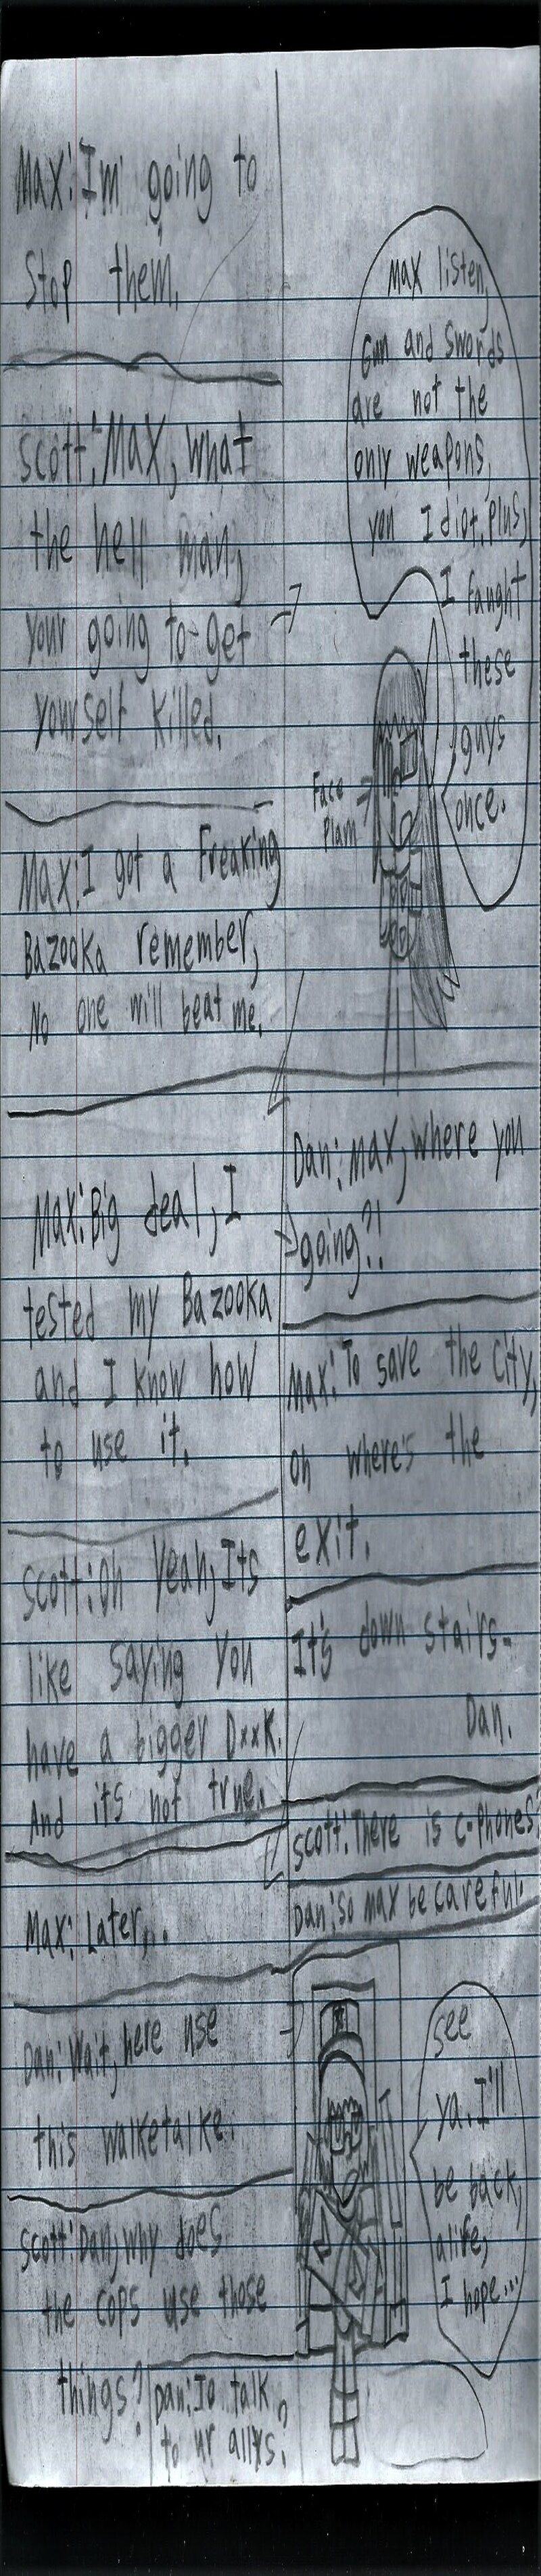 Max: I'm going to
Stop them.
Scott: Max, what
the hell man,
your going to get
yourself killed.
Max: I got a Freaking
Bazooka remember,
No one will beat me.
Max listen,
Gun and Swords
are not the
only weapons,
you Idiot. Plus,
I faught
these
guys
once.
Face
Plam
Dan: Max, where you
going?!
Max: To save the city,
oh where's the
exit.
It's down stairs-
Dan.
Max: Big deal, I
tested my Bazooka
and I know how
to use it.
Scott: Oh Yeah, Its
like saying you
have a bigger DxxK.
And its not true.
Scott: There is C-Phones?
Dan: so max be careful.
Max: Later...
Dan: Wait, here use
this walketalke.
Scott: Dan, why does
the cops use those
things?
Dan: To talk
to ur allys.
see
ya. I'll
be back,
alife,
I hope...